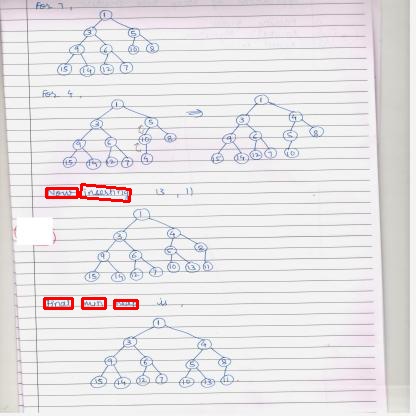 For 7,
1
3 5
9 6 10 8
15 14 12 7
For 4,
1 1
3 5 ⇒ 3 4
9 6 10 8 9 6 5 8
15 14 12 7 4 15 14 12 7 10
Now inserting 13, 11
1
3 4
9 6 5 8
15 14 12 7 10 13 11
final min heap is,
1
3 4
9 6 5 8
15 14 12 7 10 13 11